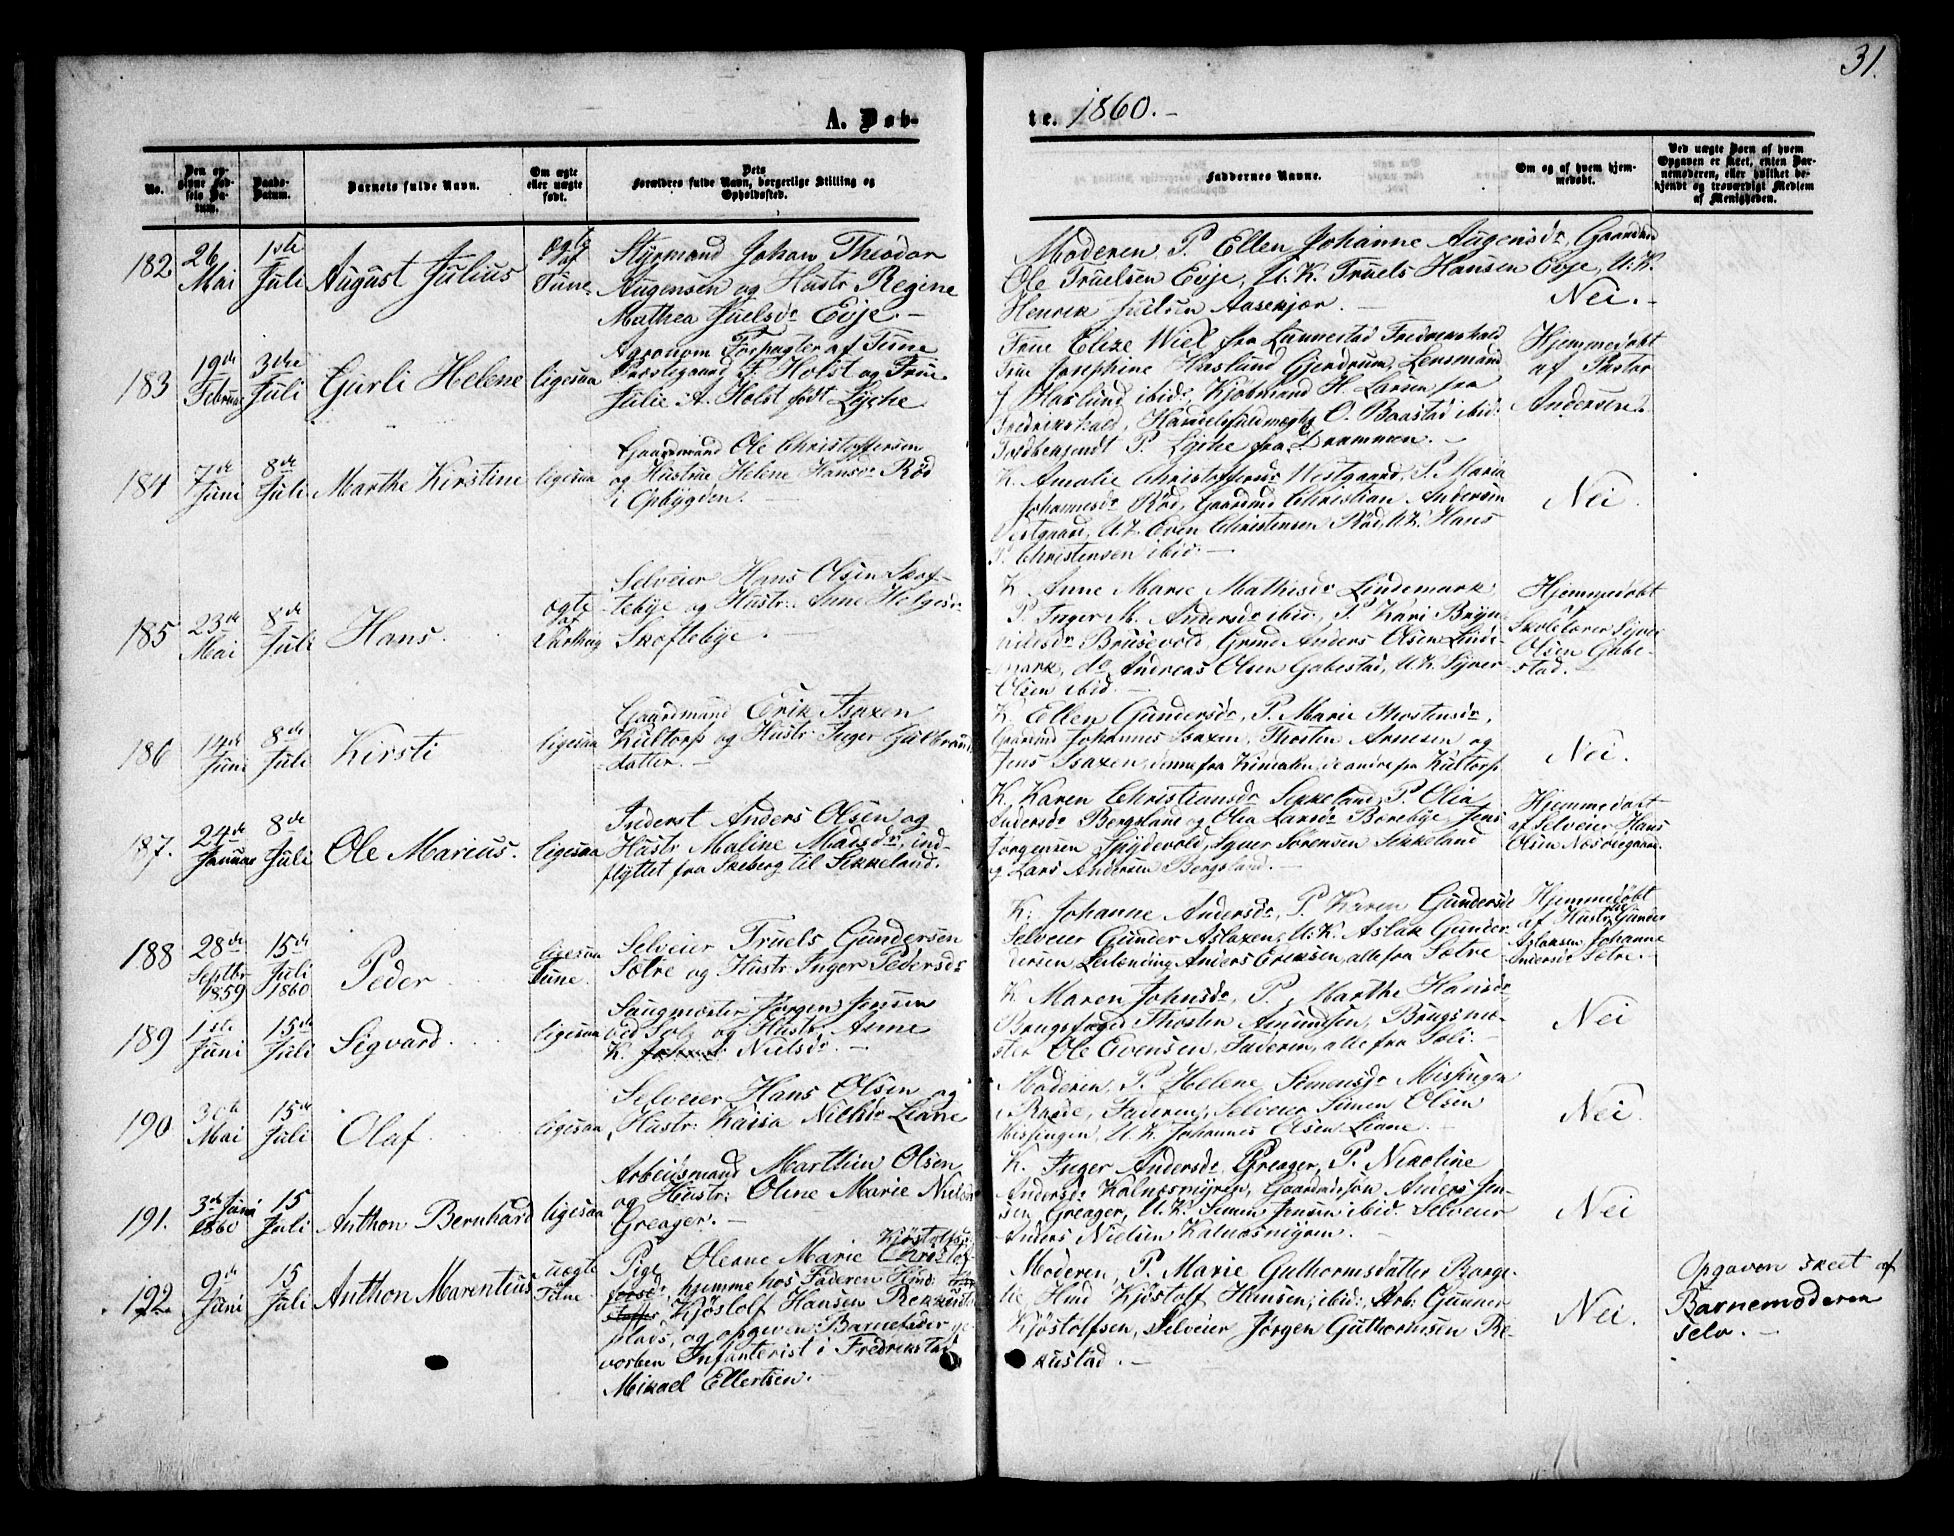 31.
A. Døb-
te. 1860.-
No.
Den opgivne Fødsels Datum.
Daabs-Datum.
Barnets fulde Navn.
Om ægte eller uægte født.
Dets Forældres fulde Navn, borgerlige Stilling og Opholdssted.
Faddernes Navne.
Om og af hvem hjemmedøbt.
Ved uægte Børn af hvem Opgaven er skeet, enten Barnemoderen, eller hvilket bekjendt og troværdigt Medlem af Menigheden.
182
26 Mai
1ste Juli
August Julius
ægte af Tune
Styrmand Johan Theodor
Augensen og Hustr Regine
Mathea Juelsdr Evje.-
Moderen, P. Ellen Johanne Augensdr, Gaardmd
Ole Truelsen Evje, U.K. Truels Hansen Evje, U.K.
Henrik Juelsen Aasekjær.-
Nei.-
183
19de Februar
3die Juli
Gurli Helene
ligesaa
Agronom Forpagter af Tune
Præstegaard F. Holst og Frue
Julie A. Holst født Lyche
Frue Elize Wiel fra Lunnestad Fredrikshald
Frue Josephine Haslund Gjerdrum, Lensmand
J Haslund ibid:, Kjøbmand H. Larsen fra
Fredrikshald, Handelsfuldmægtg O. Baastad ibid:
Toldbetjendt P. Lyche fra Drammen.-
Hjemmedøbt
af Pastor
Andersen.
184
7de Juni
8de Juli
Marthe Kirstine
ligesaa
Gaardmand Ole Christoffersen
og Hustrue Helene Hansdr Rød
i Opbygden.-
K. Amalie Christoffersdr Vestgaard, P. Maria
Johannesdr Rød, Gaardmd Christian Andersen
Vestgaard, U.K. Even Christensen Rød, U.K. Hans
P. Christensen ibid:-
Nei.
185
23de Mai
8de Juli
Hans.
ægte af Varteig
Selveier Hans Olsen Skof-
tebye og Hustr: Anne Helgesdr
Skoftebye.
K Anne Marie Mathisdr Lindemark
P. Inger M. Andersdr ibid:, P. Kari Bryn-
hildsdr Brusevold, Grmd Anders Olsen Linde-
mark, do Andreas Olsen Gabestad, U.K. Syver
Olsen ibid.-
Hjemmedøbt
Skolelærer Syver
Olsen Gabe-
stad.-
186
14de Juni
8de Juli
Kirsti
ligesaa
Gaardmand Erik Isaxen
Kultorp og Hustr: Inger Gulbrands
datter.-
K. Ellen Gundersdr, P. Marie Thostensdr,
Gaardmd Johannes Isaxen, Thosten Arnesen og
Jens Isaxen, denne fra Kirnaten, de andre fra Kultorp
Nei.
187.
24de Januar
8de Juli
Ole Marius.
ligesaa
Inderst Anders Olsen og
Hustr: Maline Madsdr, ind-
flyttet fra Skeberg til Sikkeland.
K. Karen Christiansdr Sikkeland, P. Olia
Andersdr Bergsland og Olia Larsdr Borebye, Jens
Jørgensen Spydevold, Syver Sørensen Sikkeland
og Lars Andersen Bergsland.-
Hjemmedøbt
af Selveier Hans
Olsen Næsvegaard
188
28de Septbr 1859
15de Juli 1860
Peder
ligesaa Tune.
Selveier Truels Gundersen
Sætre og Hustr: Inger Pedersdr
K: Johanne Andersdr, P Karen Gundersdr
Selveier Gunder Aslaxen, U.K. Aslak Gunder-
dersen Leilænding Anders Eriksen, alle fra Sætre
Hjemmedøbt
af Hustr: Gunder
Aslaksens Johanne
Andersdr Sætre.-
189
1ste Juni
15de Juli
Sigvard.
ligesaa
Saugmester Jørgen Jensen
ved Soli og Hustr: Anne
K. Nielsdr.-
K Maren Johnsdr, P. Marthe Hansdr
Brugsfoged Thosten Amundsen, Brugsme-
ster Ole Evensen, Faderen, alle fra Soli.-
Nei
190
30te Mai
15de Juli
Olaf.
ligesaa
Selveier Hans Olsen og
Hustr: Kaisa Nielsdr Liane
Moderen, P. Helene Simensdr Missingen
i Raade, Faderen, Selveier Simen Olsen
Missingen, U.K. Johannes Olsen Liane.-
Nei
191.
3de Juni 1860
15 Juli
Anthon Bernhard
ligesaa
Arbeidsmand Marthin Olsen
og Hustr: Oline Marie Nielsdr
Greager.-
K. Inger Andersdr Greager, P. Nikoline
Andersdr Kalnæsmyren, Gaardmdssøn Anders Jen-
sen Greager, U.K. Simen Jensen ibid. Selveier
Anders Nielsen Kalnæsmyren.-
Nei
192
9de Juni
15 Juli
Anthon Marentius
uægte Tune
Pige Olerne Marie Kjøstolfsdr
hjemme hos Faderen Hmd:
Kjøstolf Hansen Rekkustad
plads, og opgiven Barnefader ge-
vorben Infanterist i Fredrikstad
Mikael Ellertsen.-
Moderen, P. Marie Guthormsdatter Borge-
Hmd Kjøstolf Hansen, ibid:, Arb: Gunner
Kjøstolfsen, Selveier Jørgen Guthormsen Re-
kustad.-
Nei.
Opgaven skeet af
Barnemoderen
selv.-